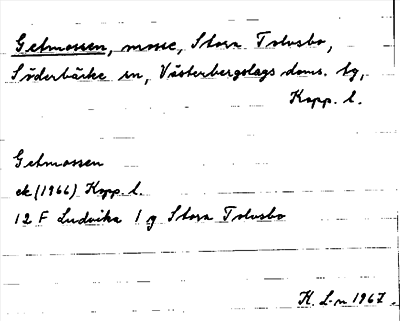 Getmossen, mosse, Stora Tolvsbo,
Söderbärke sn, Västerbergslags doms. tg,
Kopp. l.
Getmossen
ek (1966) Kopp. l.
12 F Ludvika 1 g Stora Tolvsbo
K. L-n 1967.